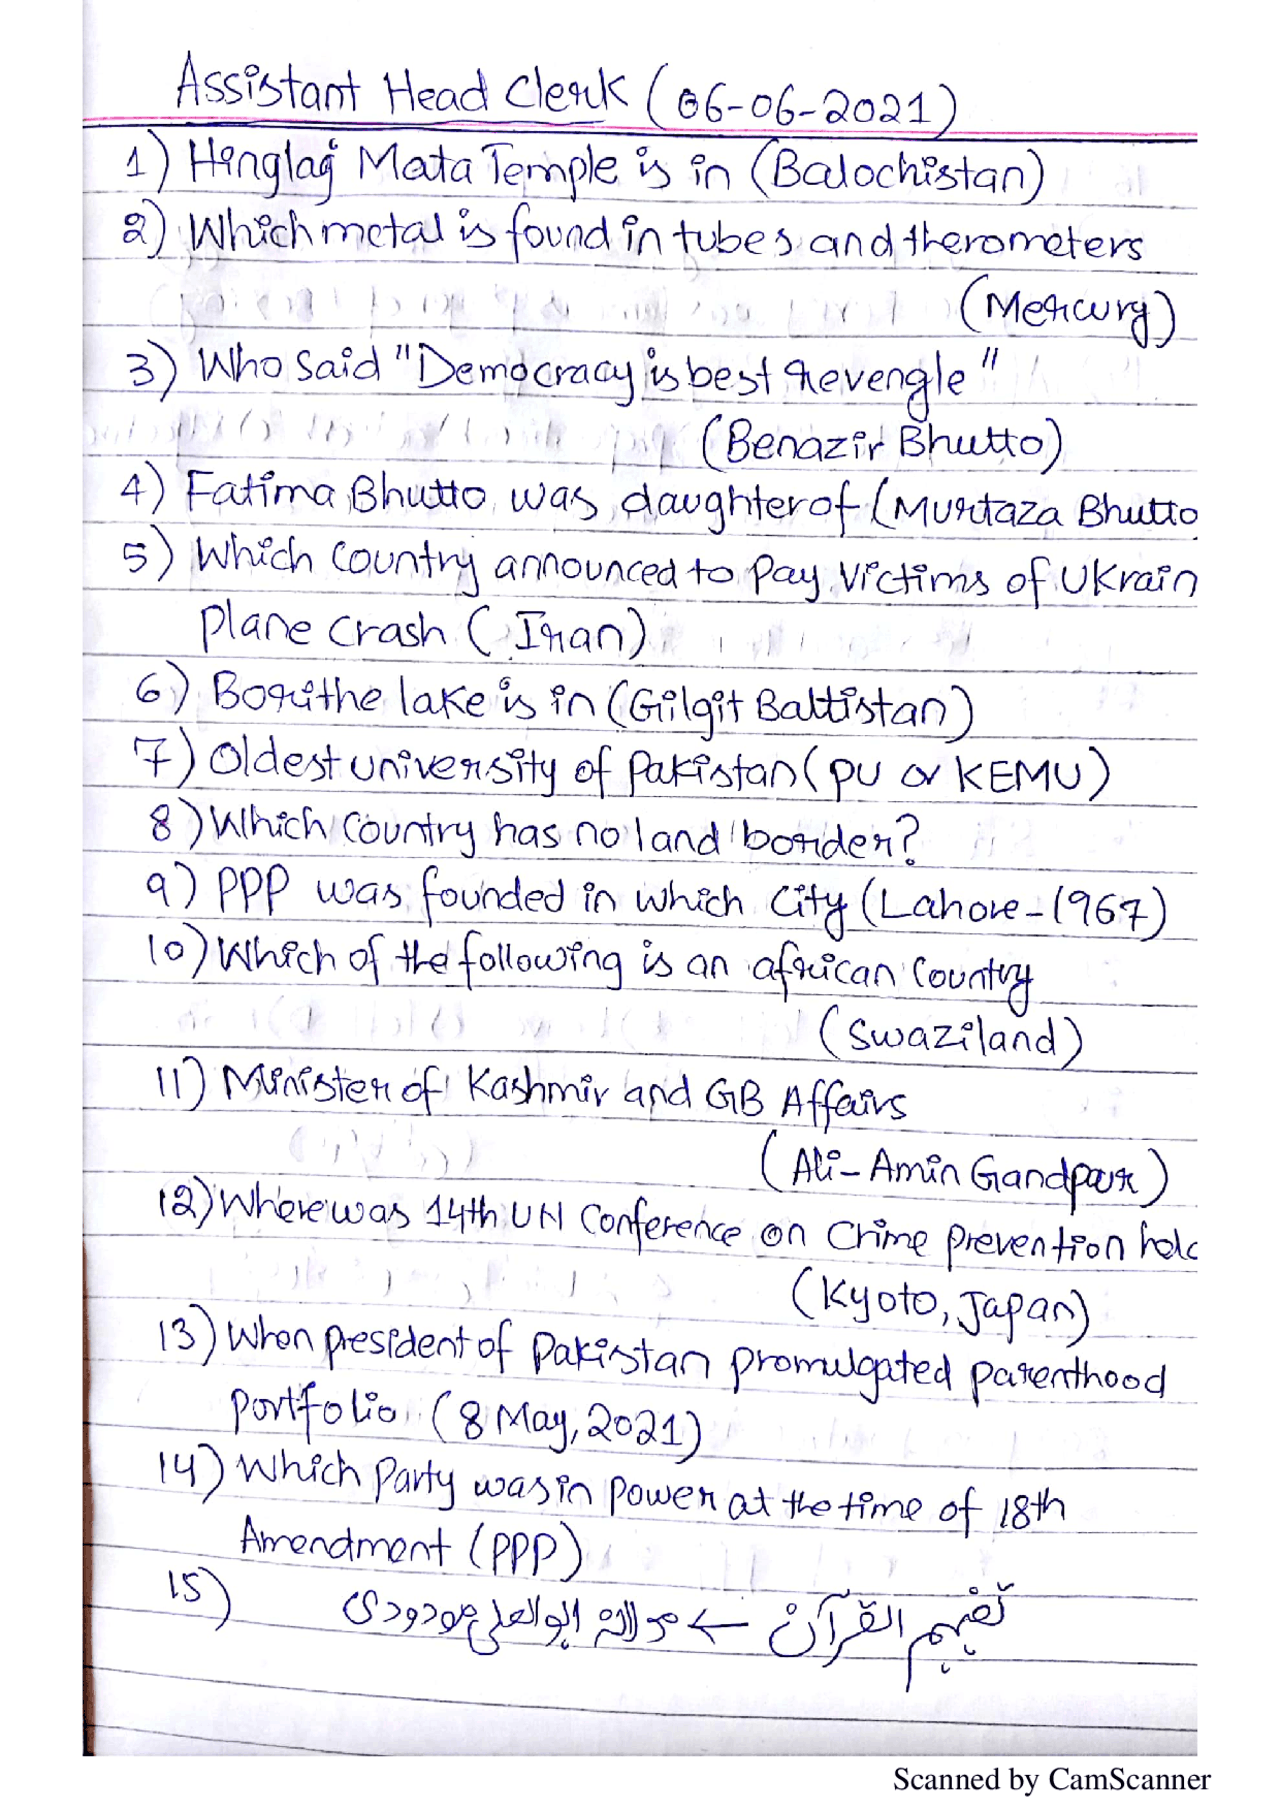 Assistant Head Clerk (06-06-2021)
1) Hinglaj Mata Temple is in (Balochistan)
2) Which metal is found in tubes and therometers
(Mercury)
3) Who said "Democracy is best revengle"
(Benazir Bhutto)
4) Fatima Bhutto was daughter of (Murtaza Bhutto
5) Which country announced to pay victims of Ukrain
plane crash (Iran)
6) Borithe lake is in (Gilgit Baltistan)
7) Oldest university of Pakistan (PU or KEMU)
8) Which country has no land border?
9) PPP was founded in which city (Lahore-1967)
10) Which of the following is an african country
(Swaziland)
11) Minister of Kashmir and GB Affairs
(Ali-Amin Gandpur)
12) Where was 14th UN Conference on Crime prevention held
(Kyoto, Japan)
13) When president of Pakistan promulgated parenthood
portfolio (8 May, 2021)
14) Which party was in power at the time of 18th
Amendment (PPP)
15) تفہیم القرآن ← مولانہ ابوالعلی مودودی
Scanned by CamScanner